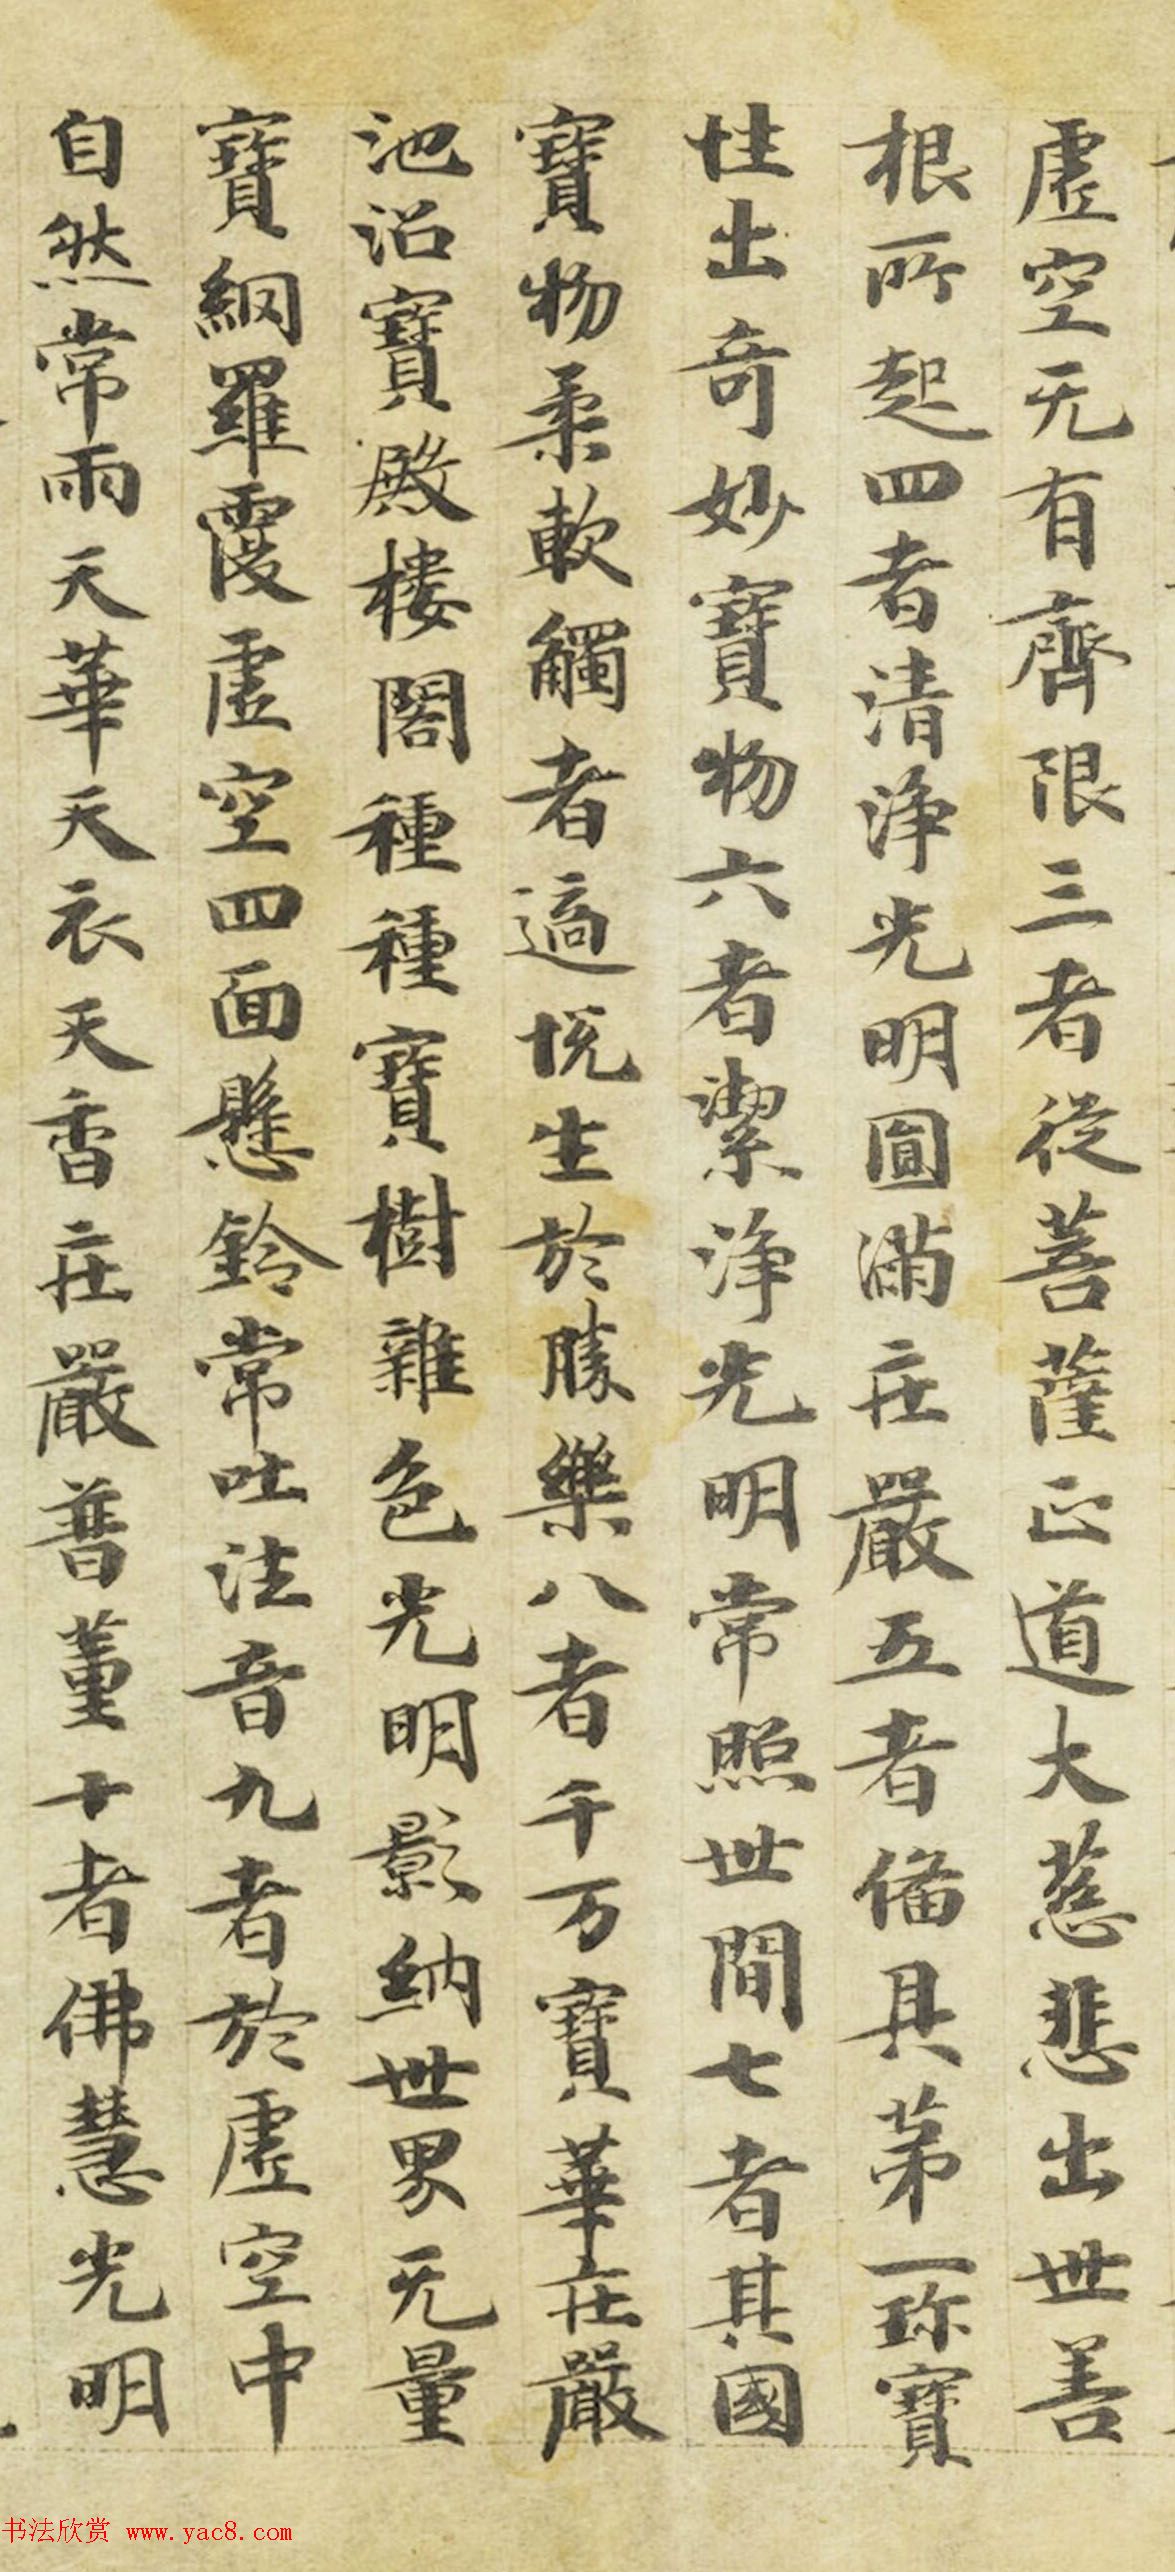 虛空无有齊限三者從菩薩正道大慈悲出世善
根所起四者清淨光明圓滿莊嚴五者備具第一珍寶
性出奇妙寶物六者潔淨光明常照世間七者其國
寶物柔軟觸者適悅生於勝樂八者千万寶華莊嚴
池沼寶殿樓閣種種寶樹雜色光明影納世界无量
寶網羅覆虛空四面懸鈴常吐法音九者於虛空中
自然常雨天華天衣天香莊嚴普薰十者佛慧光明
书法欣赏 www.yac8.com